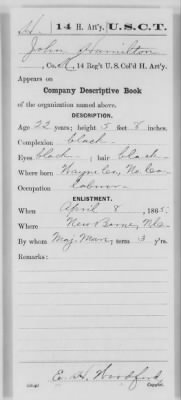 H. | 14 H. Art'y, U.S.C.T.
John Hamilton
, Co. H, 14 Reg't U. S. Col'd H. Art'y.
Appears on
Company Descriptive Book
of the organization named above.
DESCRIPTION.
Age 22 years; height 5 feet 8 inches.
Complexion black
Eyes black ; hair black
Where born Wayne Co, No. Ca.
Occupation labour
ENLISTMENT.
When April 8 , 1865.
Where New Berne, N.C.
By whom Maj. Mann; term 3 y'rs.
Remarks:
E. H. Woodford
Copyist.